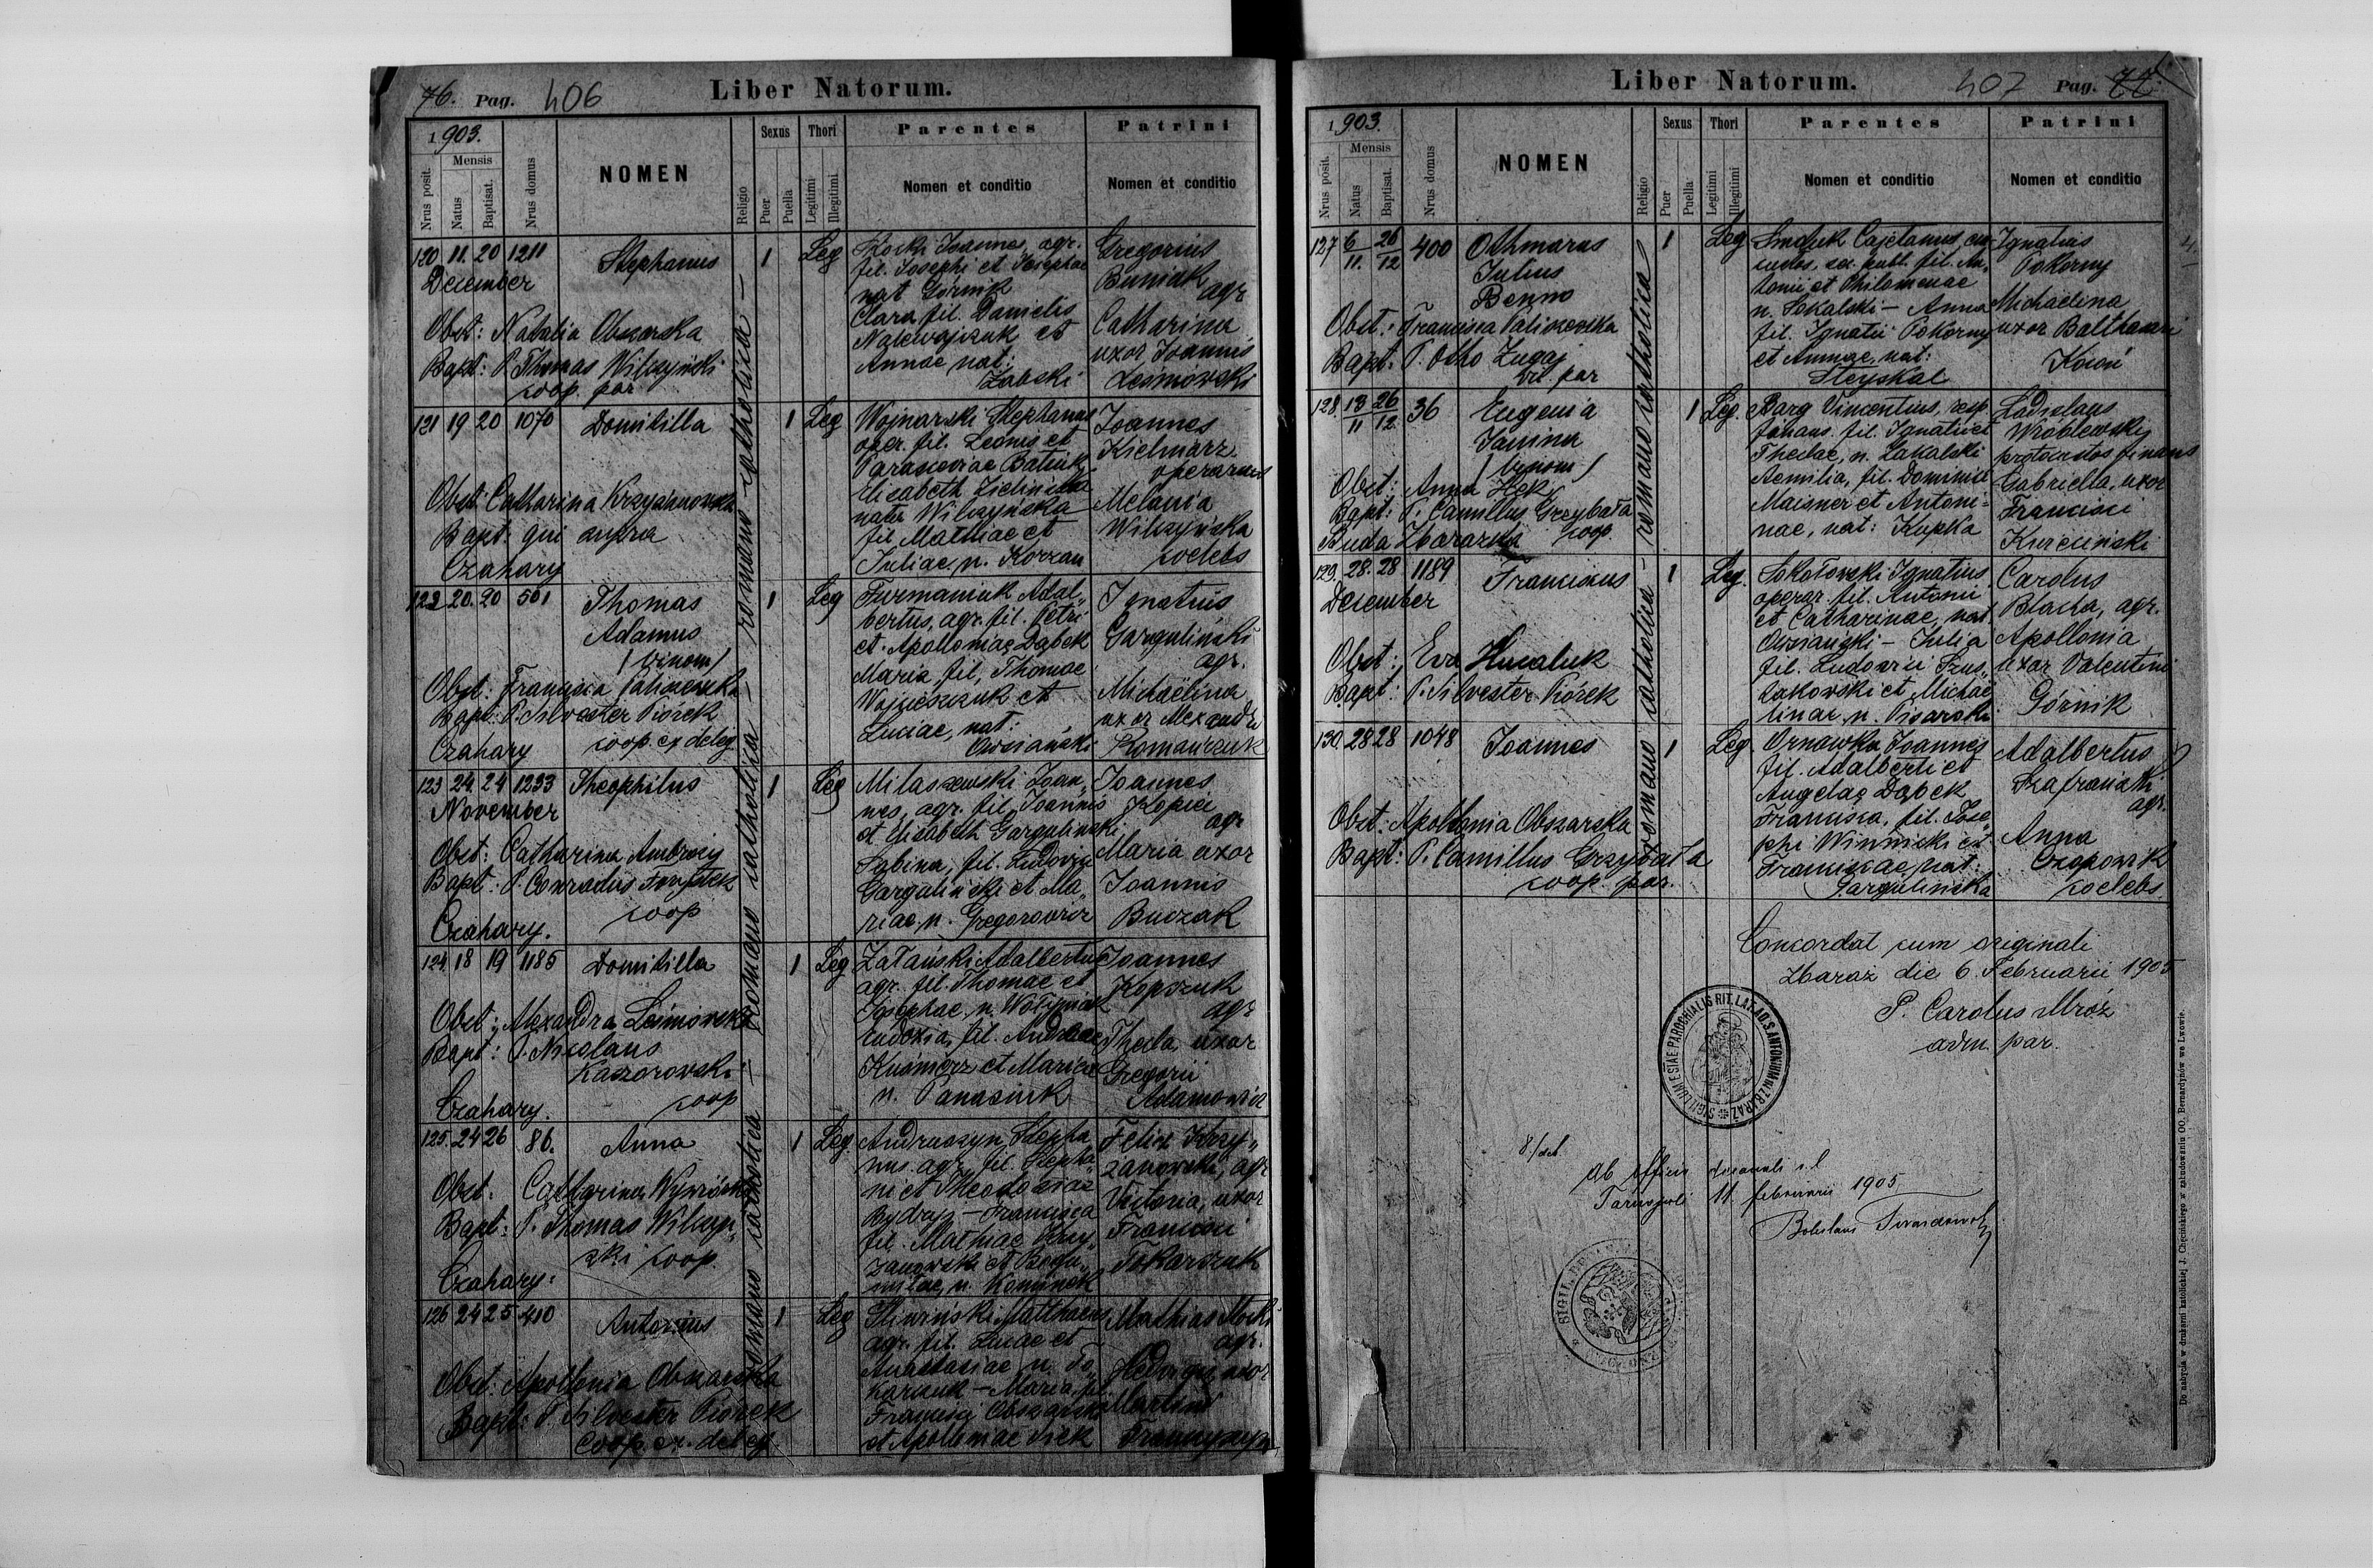 76. Pag. 406
Liber Natorum.
1903.
Mensis
Nrus posit.
Natus
Baptisat.
Nrus domus
NOMEN
Religio
Sexus
Puer
Puella
Thori
Legitimi
Illegitimi
Parentes
Nomen et conditio
Patrini
Nomen et conditio
romano catholica — romano catholica — romano catholica
120 11. 20 1211
December
Stephanus
1
Leg
Obst: Natalia Obszarska
Bapt: P. Thomas Wilczyński
coop. par
Joannes, agr.
fil. Josephi et Josephae
nat Górnik
Clara fil. Danielis
Nalewajczuk et
Annae nat:
Żabski
Gregorius
Buniak
agr
Catharina
uxor Joannis
Leśniowski
121 19 20 1070
Domitilla
1
Leg
Obst: Catharina Krzyżanowska
Bapt: qui supra
Czahary
Wojnarski Stephanus
oper. fil. Leonis et
Parasceviae Batiuk
Elisabeth Zielińska
nata Wilczyńska
fil Mathiae et
Juliae, n. Korzan
Joannes
Kielmarz
operarius
Melania
Wilczyńska
coelebs
122 20. 20 501
Thomas
Adamus
/ binom /
1
Leg
Obst: Francisca Paliszewska
Bapt: P. Silvester Piórek
coop. ex deleg
Czahary
Furmaniuk Adal-
bertus, agr. fil. Petri
et Apolloniae Dąbek
Maria, fil, Thomae
Wojcieszczuk et
Luciae, nat:
Owsiański
Ignatius
Garguliński
agr.
Michaelina
uxor Alexandri
Romańczuk
123 24. 24 1233
November
Theophilus
1
Leg
Obst: Catharina Ambrozy
Bapt: P. Conradus
coop
Czahary.
Milaszewski Joan-
nes, agr. fil. Joannis
et Elisabeth Gargulinski
Sabina, fil. Ludovici
Garguliński et Ma-
riae, n. Gregorowicz
Joannes
Kopiec
agr
Maria uxor
Joannis
Buczak
124 18 19 1185
Domitilla
1
Leg
Obst: Alexandra Leśniowska
Bapt: P. Nicolaus
Kaczorowski
coop
Czahary.
Załański Adalbertus
agr. fil. Thomae et
Josephae, n. Wołyniak
Eudoxia, fil. Andreae
Kuśnierz et Mariae
n. Panasiuk
Joannes
Kopczuk
agr
Thecla, uxor
Gregorii
Adamowicz
125. 24 26 86.
Anna
1
Leg.
Obst: Catharina
Bapt: P. Thomas Wilczyń-
ski coop.
Czahary.
Andruszyn Stepha-
nus. agr. fil. Stepha-
ni et Theodoziae
Bydra — Francisca
fil. Mathiae Krzy-
żanowski et Bogu-
miłae, n. Kominek
Felix Krzy-
żanowski, agr
Victoria, uxor
Francisci
Tokarczuk
126 24 25 410
Antonius
1
Leg
Obst: Apollonia Obszarska
Bapt: P. Silvester Piórek
Coop. ex. deleg
Śliwiński Matthaeus
agr. fil. Lucae et
Anastasiae n. To-
karczuk — Maria, fil.
Francisci Obszarski
et Apolloniae
Mathias
agr.
Hedvigis, uxor
Martini
Liber Natorum.
407 Pag. 77
1903.
Mensis
Nrus posit.
Natus
Baptisat.
Nrus domus
NOMEN
Religio
Sexus
Puer
Puella
Thori
Legitimi
Illegitimi
Parentes
Nomen et conditio
Patrini
Nomen et conditio
romano catholica — romano catholica
127 6/11. 26/12 400
Othmarus
Julius
Benno
1
Leg
Obst: Francisca Paliszewska
Bapt: P. Otho Zugaj
vic. par
Smoluk Cajetanus,
fil. An-
tonii et Philomenae
n. Sokalski — Anna
fil. Ignatii Pokorny
et Annae, nat:
Steyskal
Ignatius
Pokorny
Michaelina
uxor Balthasari
Kocoń
128. 13/11 26/12 36
Eugenia
Janina
/ binom /
1
Leg.
Obst: Anna Hek
Bapt: P. Camillus Grzybała
coop.
Ruda Zbarazka
Barg Vincentius, resp.
finans. fil. Ignatii et
Theclae, n. Zakalski
Aemilia, fil. Dominici
Maisner et Antoni-
nae, nat: Kopka
Ladislaus
Wróblewski
protocustos finans
Gabriella, uxor
Francisci
Kurciński
129. 28. 28 1189
December
Franciscus
1
Leg.
Obst: Eva Hucaluk
Bapt: P. Silvester Piórek
Sokołovski Ignatius
operar. fil. Antonii
et Catharinae, nat.
Owsiański — Julia
fil. Ludovici Szus-
takovski et Michae-
linae, n. Pisarski
Carolus
Blacha, agr.
Apollonia
uxor Valentini
Górnik
130. 28 28 1048
Joannes
1
Leg.
Obst: Apollonia Obszarska
Bapt: P. Camillus Grzybała
coop. par.
Ornawka Joannes
fil. Adalberti et
Angelae Dąbek
Francisca, fil. Jose-
phi Winnicki et
Franciscae, nat:
Gargulińska
Adalbertus
Szafrański
agr.
Anna
Czopowik
coelebs.
Concordat cum originali
Zbaraż die 6. Februarii 1905
P. Carolus Mróz
adm. par.
SIGILLUM ECCLESIAE PAROCHIALIS RIT. LAT. AD S. ANTONIUM IN ZBARAZ
Ab officio decanali r. l
Tarnopoli 11. februarii 1905
Boleslaus Twardowski
Do nabycia w drukarni katolickiej J. Chęcińskiego w zabudowaniu OO. Bernardynów we Lwowie.